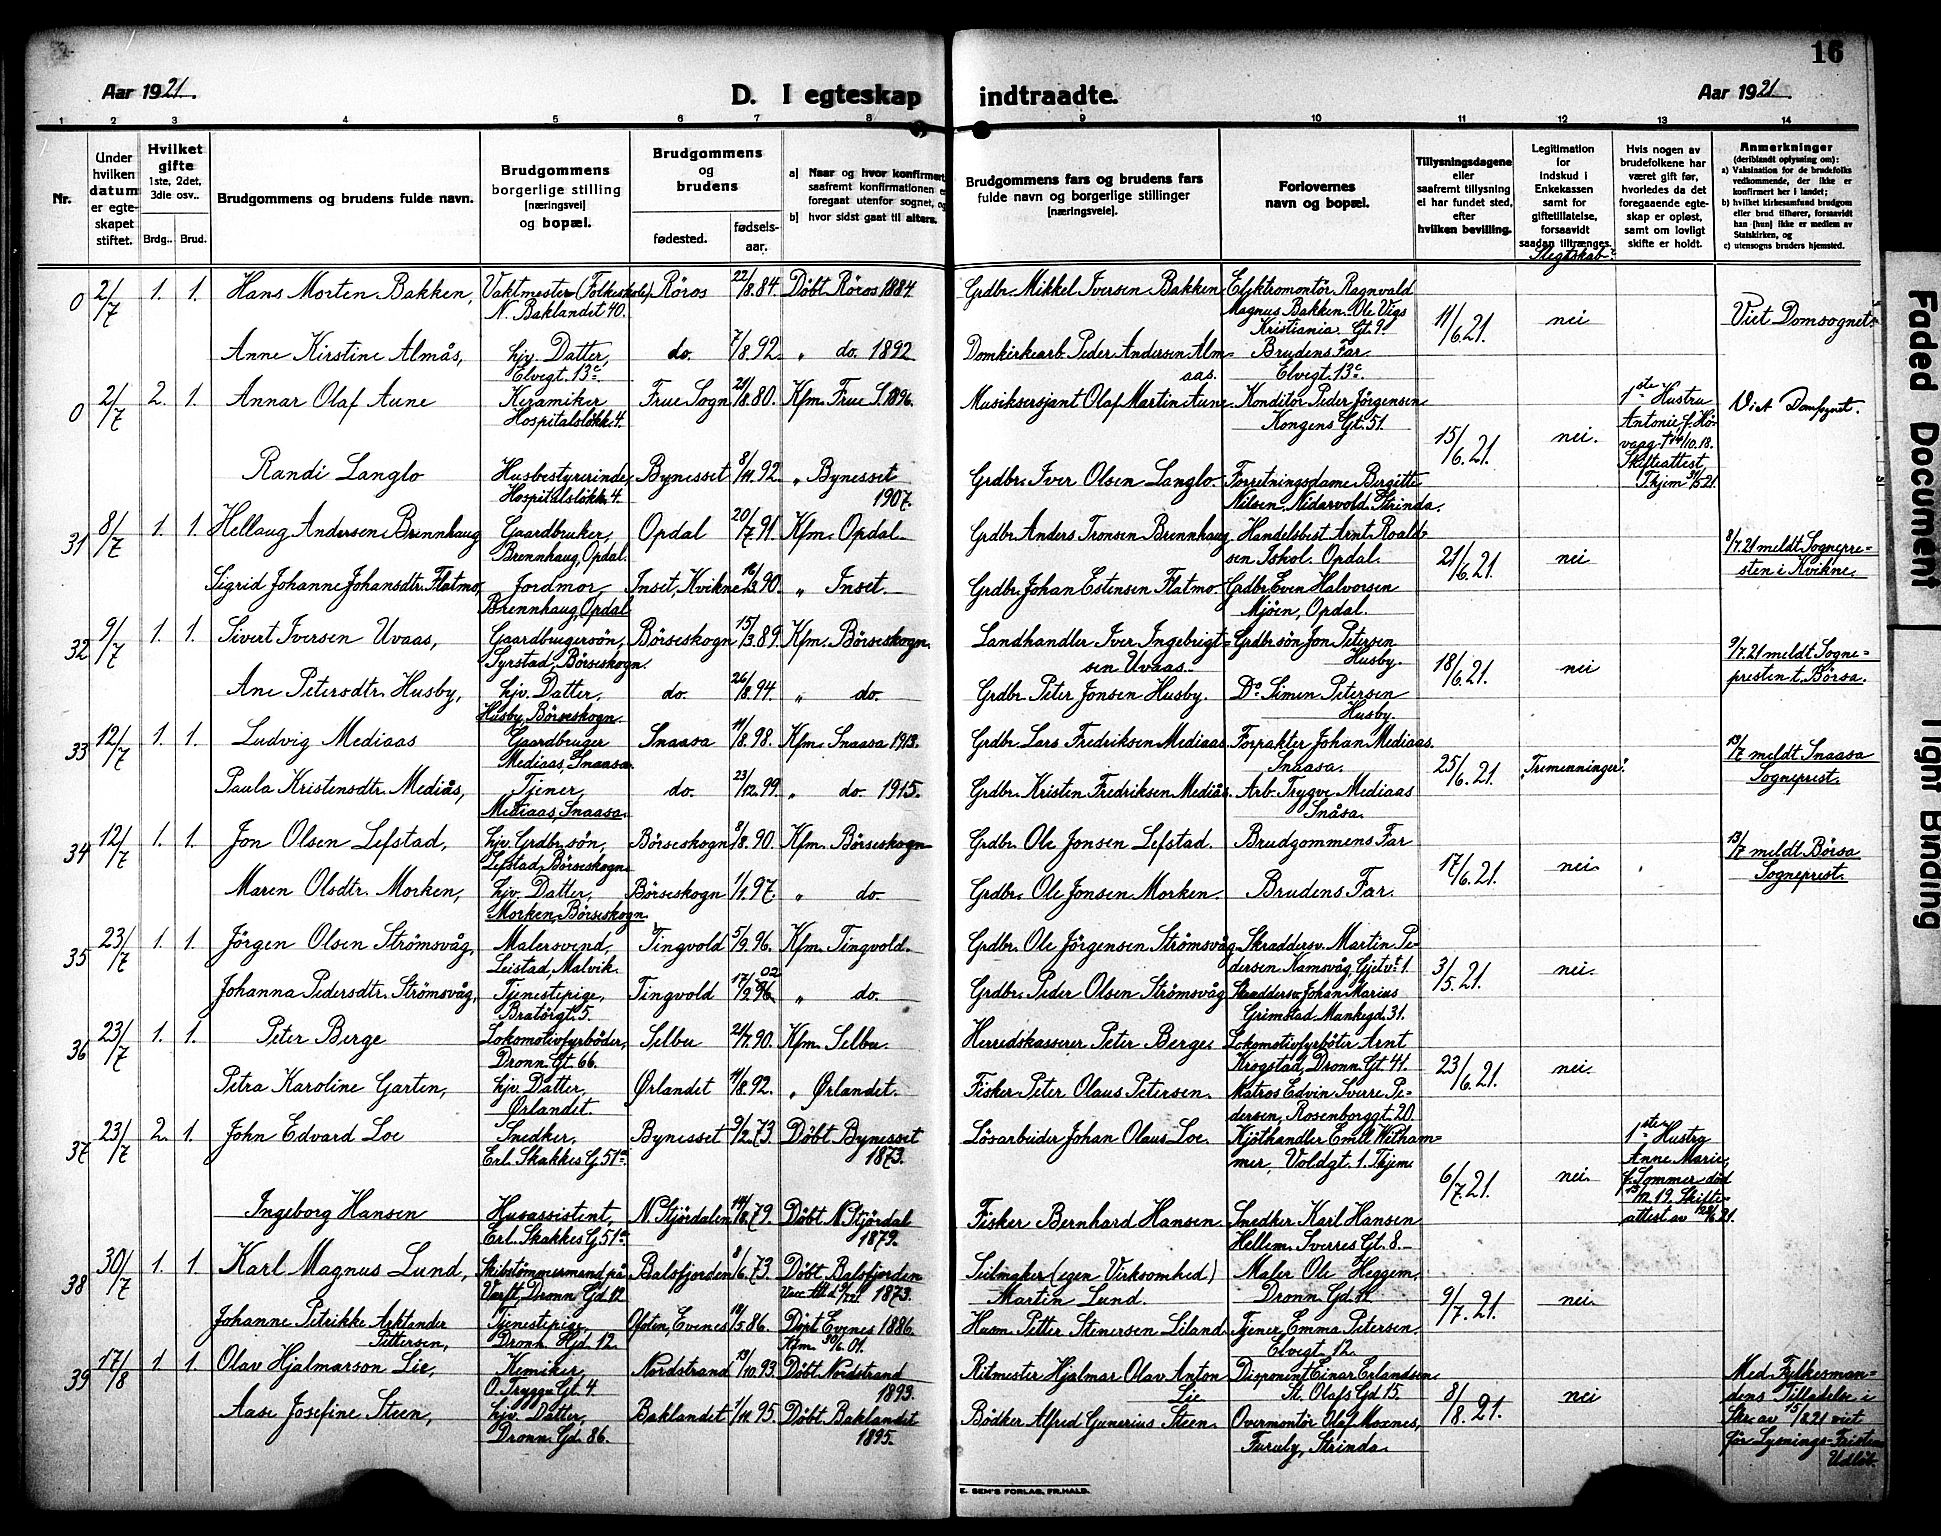 16
Aar 1921.
D. I egteskap indtraadte.
Aar 1921
1 2 3 4 5 6 7 8 9 10 11 12 13 14
Nr.
Under hvilken datum er egteskapet stiftet.
Hvilket gifte 1ste, 2det, 3die osv..
Brdg.. Brud.
Brudgommens og brudens fulde navn.
Brudgommens borgerlige stilling [næringsvei] og bopæl.
Brudgommens og brudens
fødested.
fødselsaar.
a) Naar og hvor konfirmert, saafremt konfirmationen er foregaat utenfor sognet, og
b) hvor sidst gaat til alters.
Brudgommens fars og brudens fars fulde navn og borgerlige stillinger [næringsveie].
Forlovernes navn og bopæl.
Tillysningsdagene eller saafremt tillysning ei har fundet sted, efter hvilken bevilling.
Legitimation for indskud i Enkekassen samt for giftetillatelse, forsaavidt saadan tiltrænges.
Slegtskab?
Hvis nogen av brudefolkene har været gift før, hvorledes da det foregaaende egteskap er opløst, samt om lovligt skifte er holdt.
Anmerkninger (deriblandt oplysning om):
a) Vaksination for de brudefolks vedkommende, der ikke er konfirmert her i landet;
b) hvilket kirkesamfund brudgom eller brud tilhører, forsaavidt han [hun] ikke er medlem av Statskirken, og
c) utensogns bruders hjemsted.
0 2/7 1. 1. Hans Morten Bakken, Vaktmester (Folkeskole) N. Baklandet 40. Röros 22/8.84 Döbt Röros 1884 Grdbr. Mikkel Iversen Bakken Elektromontör Ragnvald Magnus Bakken Ole Vigs Kristiania Gt. 9 11/6.21. nei Viet Domsognet.
Anne Kirstine Almås, hjv. Datter, Elvegt. 13c. do. 7/8.92 " do. 1892 Domkirkearb. Peder Andersen Almaas. Brudens Far Elvegt. 13c.
0 2/7 2. 1. Annar Olaf Aune Keramiker Hospitalslökk. 4. Frue Sogn 21/8.80. Kfm. Frue S. 1896. Musiksersjant Olaf Martin Aune Konditor Peder Jörgensen Kongens Gt. 51. 15/6.21. nei. 1ste Hustru Antonie f. Hövaag † 10.18. Skifteattest Thjem 31/5.21. Viet Domsognet.
Randi Langlo Husbestyrerinde, Hospitalslökk. 4. Bynesset 8/11.92. " Bynesset 1907. Grdbr. Iver Olsen Langlo Forretningsdame Bergitte Nilsen, Nidarvold Strinda.
31 8/7 1. 1. Hellaug Andersen Brennhaug Gaardbruker, Brennhaug, Opdal. Opdal 20/7.91. Kfm. Opdal. Grdbr. Anders Tronsen Brennhaug Handelsbest. Arnt Roaldsen Iskol. Opdal. 21/6.21. nei 8/7.21 meldt Sognepresten i Kvikne.
Sigrid Johanne Johansdtr. Flatmo, Jordmor, Brennhaug, Opdal Inset, Kvikne 16/3.90. " Inset. Grdbr. Johan Estensen Flatmo. Grdbr. Even Halvorsen Mjöen, Opdal.
32 9/7 1. 1. Sivert Iversen Uvaas, Gaardbrugersön, Syrstad, Börseskogn. Börseskogn 15/3.89 Kfm. Börseskogn. Landhandler Iver Ingebrigtsen Uvaas. Grdbr.sön Jon Petersen Husby. 18/6.21. nei 9/7.21 meldt Sognepresten t. Börsa.
Ane Petersdtr. Husby, hjv. Datter, Husby, Börseskogn. do. 26/8.94. " do. Grdbr. Peter Jonsen Husby. Do. Simen Petersen Husby.
33 12/7 1. 1. Ludvig Mediaas Gaardbruger Mediaas, Snaasa. Snaasa 11/8.98. Kfm. Snaasa 1913. Grdbr. Lars Fredriksen Mediaas. Forpakter Johan Mediaas. Snaasa. 25/6.21. "Tremenninger". 13/7 meldt Snaasa Sogneprest.
Paula Kristensdtr. Mediås, Tjener, Mediaas, Snaasa. do. 23/12.99. " do. 1915. Grdbr. Kristen Fredriksen Mediås. Arb. Trygve Mediaas Snåsa.
34 12/7 1. 1. Jon Olsen Lefstad, hjv. Grdbr. sön, Lefstad, Börseskogn. Börseskogn 8/8.90. Kfm. Börseskogn Grdbr. Ole Jonsen Lefstad. Brudgommens Far 17/6.21. nei. 13/7 meldt Börsa Sogneprest.
Maren Olsdtr. Morken, hjv. Datter, Morken, Börseskogn. Börseskogn 1/1.97. " do. Grdbr. Ole Jonsen Morken. Brudens Far.
35 23/7 1. 1. Jörgen Olsen Strömsvåg, Malersvend, Leistad, Malvik. Tingvold 5/9.96. Kfm. Tingvold. Grdbr. Ole Jörgensen Strömsvåg Skraddersv. Martin Pedersen Kamsvåg, Gjetvt. 1. 3/5.21. nei.
Johanna Pedersdtr. Strömsvåg, Tjenestepige, Bratörgt. 5. Tingvold 17/2.96 02 " do. Grdbr. Peder Olsen Strömsvåg Skraddersv. Johan Marius Grimstad Munkegd. 31.
36 23/7 1. 1. Peter Berge Lokomotivfyrböder, Dronn. Gt. 66. Selbu 21/7.90. Kfm. Selbu. Herredskasserer Peter Berge. Lokomotivfyrböter Arnt Krogstad, Dronn. Gt. 41. 23/6.21. nei.
Petra Karoline Garten, hjv. Datter, Ørlandet. Ørlandet 11/8.92. " Ørlandet. Fisker Peter Olaus Petersen. Matros Edvin Sverre Pedersen, Rosenborggt. 20.
37 23/7 2. 1. John Edvard Loe Snedker, Erl. Skakkes G. 51a. Bynesset 9/2.73. Döbt Bynesset 1873. Lösarbeider Johan Olaus Loe. Kjöthandler Emil Withammer, Voldgt. 1. Thjem 6/7.21. nei. 1ste Hustru Anne Marie, f. Sommer död 12.19. Skifteattest av 6.21.
Ingeborg Hansen Husassistent, Erl. Skakkes G. 51a. N. Stjördalen 8.79. Döbt N. Stjördal 1879. Fisker Bernhard Hansen Snedker Karl Hansen Hellem. Sverres Gt. 8.
38 30/7 1. 1. Karl Magnus Lund, Skibstömmermand på Værft, Dronn. Gd. 12 Balsfjorden 8/6.73. Döbt Balsfjorden 1873. Seilmaker (egen Virksomhed) Martin Lund. Maler Ole Heggem, Dronn. Gd. 11. 9/7.21. nei.
Johanne Petrikke Arktander Pettersen, Tjenestepige, Dronn. Hjd. 12. Ofoten, Evenes 18/5.86. Döpt Evenes 1886. Kfm. 30/6.01. Husm. Petter Stenersen Liland. Tjener Emma Petersen. Elvegt. 12.
39 17/8 1 1. Olav Hjalmarson Lie, Kemiker, O. Tryggv. Gt. 4. Nordstrand 13/10.93. Döbt Nordstrand 1893. Ritmester Hjalmar Olav Anton Lie. Disponent Einar Erlandsen, St. Olafs Gd. 15. 8/8.21. nei Med Fylkesmandens Tilladelse i Skr. av 15/8.21 viet för Lysnings-Fristens Udlöb.
Aase Josefine Steen, hjv. Datter, Dronn. Gd. 86. Baklandet 1/11.95. Döbt Baklandet 1895. Bödker Alfred Gunerius Steen. Overmontör Olaf Moxnes, Furuly, Strinda.
E. SEM'S FORLAG, FR.HALD.
Faded Document
Tight Binding